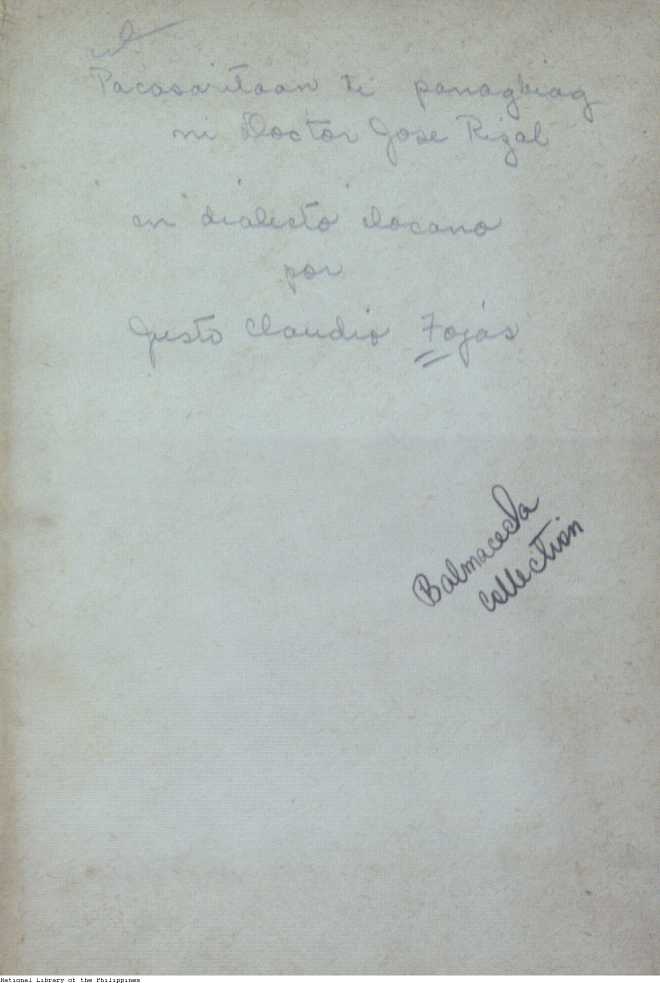 Pacasaritaan ti panagbiag
ni Doctor Jose Rizal
en dialecto ilocano
por
Justo Claudio Fojás
Balmaceda
collection
National Library of the Philippines